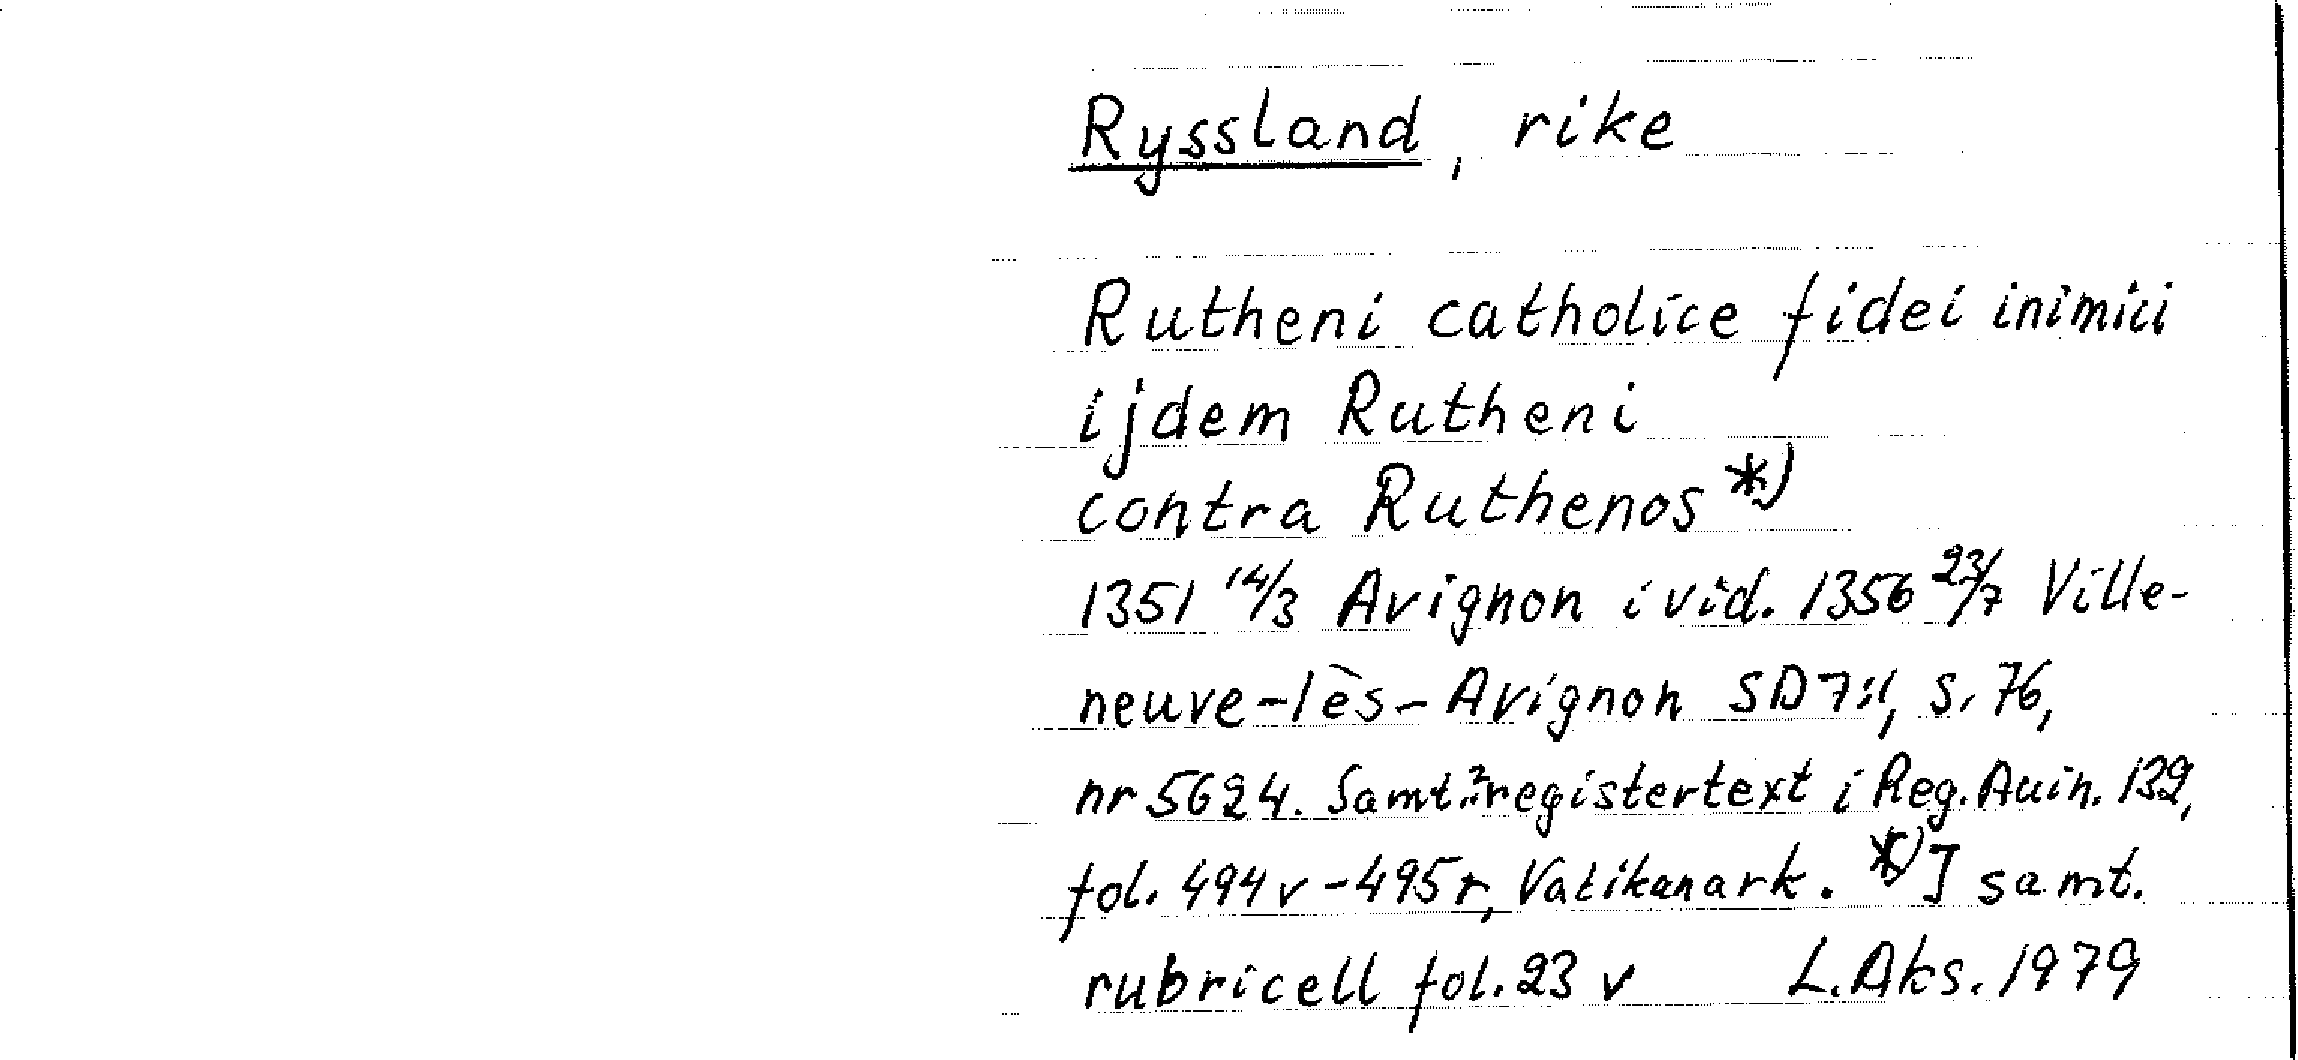 Ryssland, rike
Rutheni catholice fidei inimici
ijdem Rutheni
contra Ruthenos *)
1351 14/3 Avignon i vid. 1356 23/7 Ville-
neuve-lès-Avignon SD 7:1, s. 76,
nr 5624. Samt. registertext i Reg. Auin. 132,
fol. 494 v - 495 r, Vatikanark. *) I samt.
rubricell fol. 23 v L. Aks. 1979